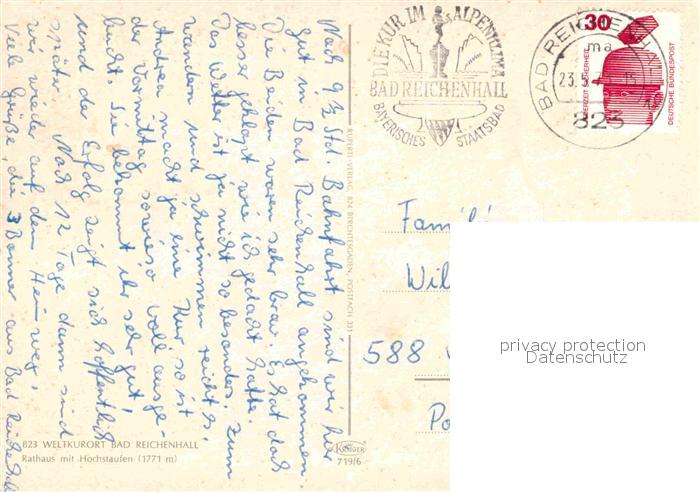 Nach 9½ Std. Bahnfahrt sind wir hier
gut in Bad Reichenhall angekommen.
Die Beiden waren sehr brav. Es hat doch
besser geklappt wie ich gedacht hatte.
Das Wetter ist ja nicht so besonders. Zum
wandern und schwimmen reicht's.
Andrea macht ja eine Kur, so ist
der Vormittag sowieso voll ausge-
bucht. Sie bekommt ihr sehr gut
und der Erfolg zeigt sich hoffentlich
später. Noch 12 Tage dann sind
wir wieder auf dem Heimweg!
Viele Grüße, die 3 Bonner aus Bad Reichenhall
823 WELTKURORT BAD REICHENHALL
Rathaus mit Hochstaufen (1771 m)
RUPERTI-VERLAG, 824 BERCHTESGADEN, POSTFACH 331
KRÜGER
719/6
DIE KUR IM ALPENKLIMA
BAD REICHENHALL
BAYERISCHES STAATSBAD
BAD REICHENHALL
ma
23.5.7
823
30
JEDERZEIT SICHERHEIT
DEUTSCHE BUNDESPOST
Famili
Wil
588
Po
privacy protection
Datenschutz